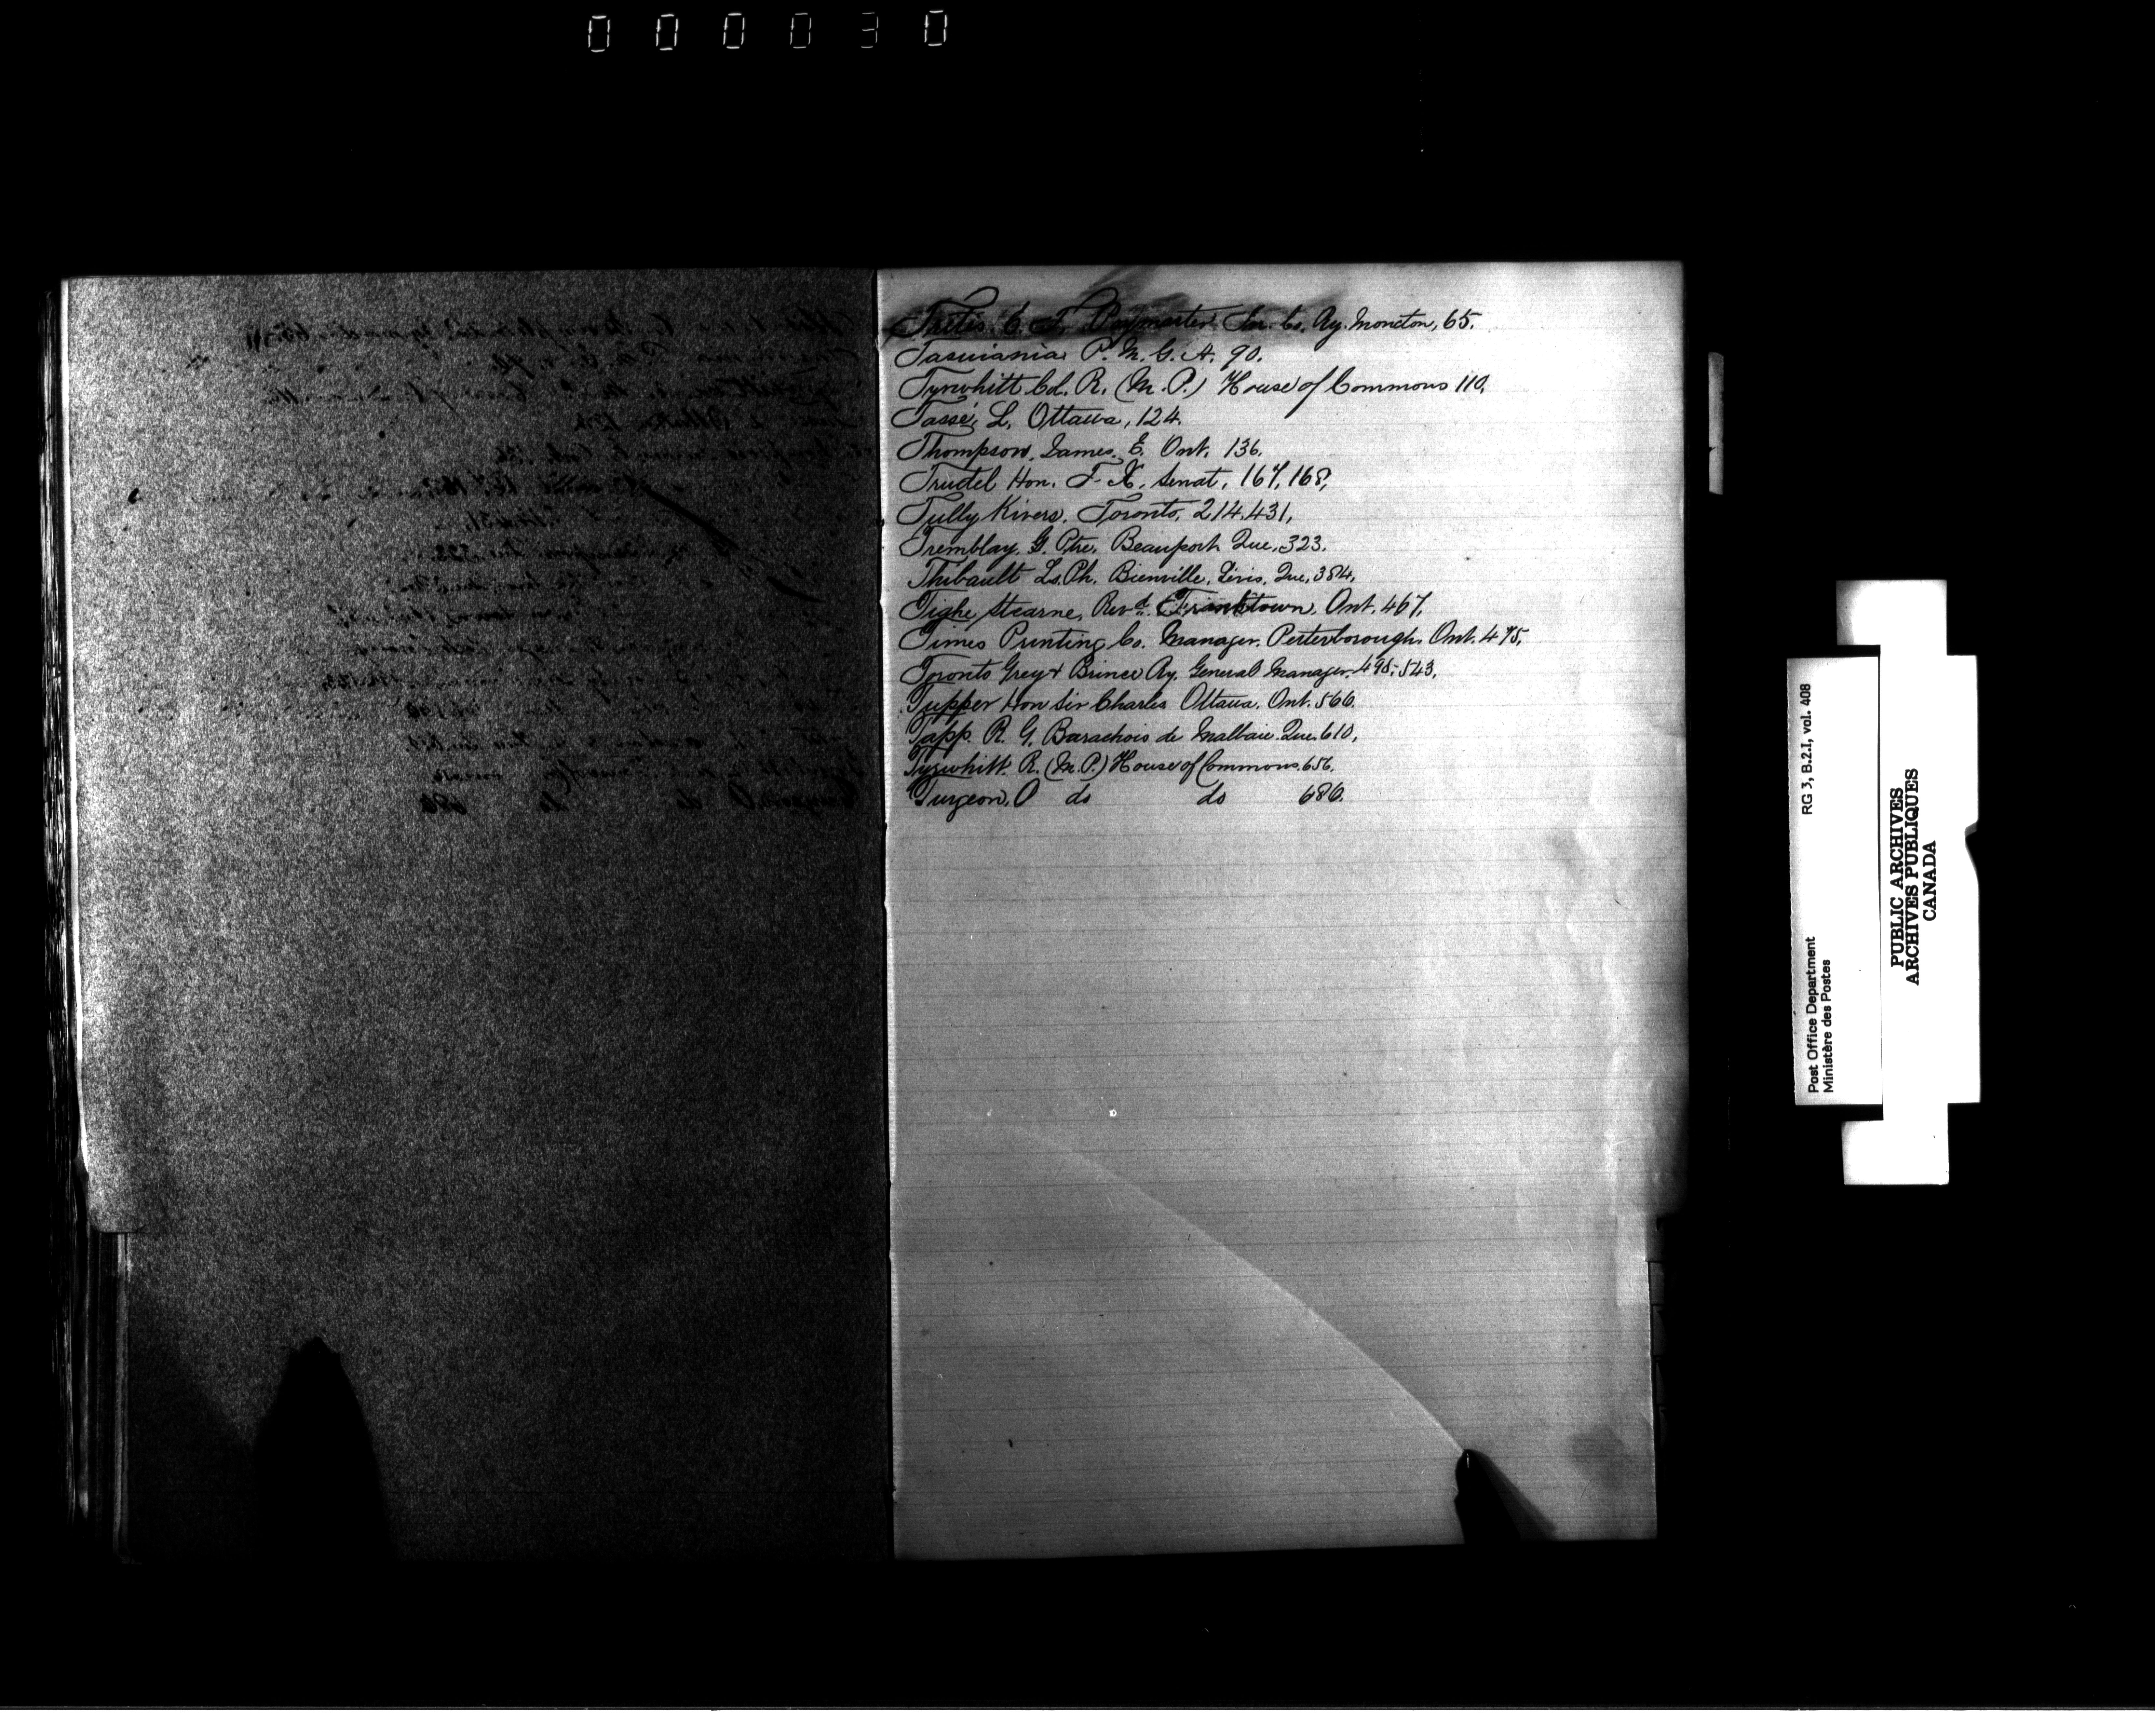 000030
Tretis. C. T. Paymaster Int. Co. Ry. Moncton, 65.
Tasmania P. M. G. A. 90.
Tyrwhitt Col. R. (M. P.) House of Commons 110.
Tassé, L. Ottawa, 124.
Thompson, James. E. Ont. 136.
Trudel Hon. F. X. Senat. 167, 168,
Tully Kivers. Toronto, 214, 431,
Tremblay. G. Ptre. Beauport Que. 323.
Thibault Ls. Ph. Bienville, Lévis. Que. 384,
Tighe Stearne, Revd. Franktown, Ont. 467,
Times Printing Co. Manager. Peterborough. Ont. 475.
Toronto Grey & Bruce Ry. General Manager. 495. 543,
Tupper Hon Sir Charles Ottawa. Ont. 566.
Tapp R. G. Barachois de Malbaie. Que. 610,
Tyrwhitt. R. (M. P.) House of Commons. 656.
Turgeon. O do do 686.
Post Office Department RG 3, B.2.I, vol. 408
Ministère des Postes
PUBLIC ARCHIVES
ARCHIVES PUBLIQUES
CANADA